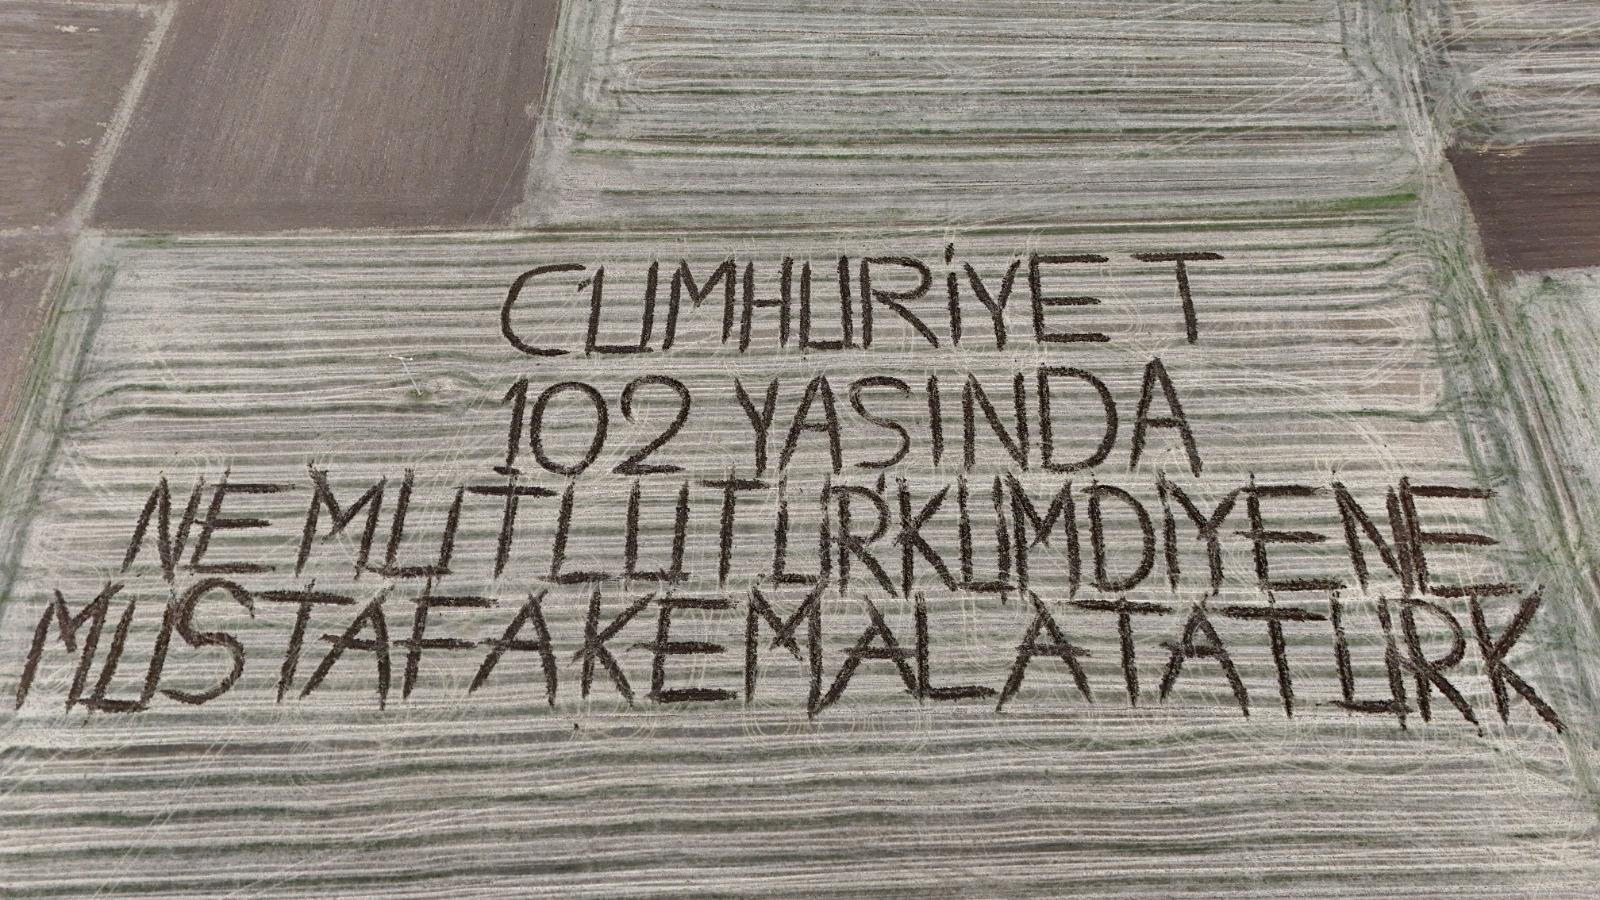 CUMHURİYET
102 YASINDA
NE MUTLU TURKUM DIYENE
MUSTAFA KEMAL ATATURK